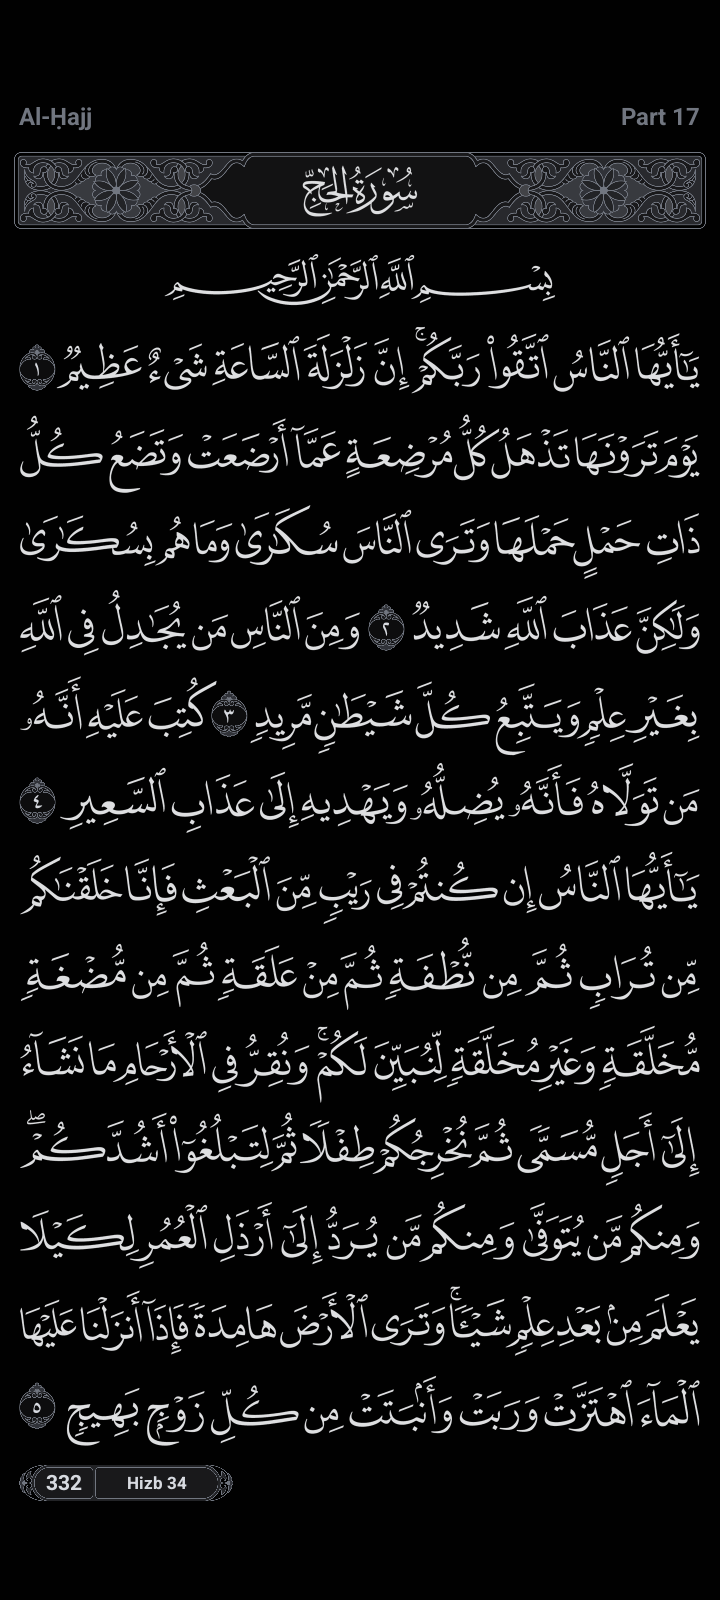 Al-Ḥajj
Part 17
سُورَةُ الحَجِّ
بِسْمِ ٱللَّهِ ٱلرَّحْمَٰنِ ٱلرَّحِيمِ
يَٰٓأَيُّهَا ٱلنَّاسُ ٱتَّقُوا۟ رَبَّكُمْ ۚ إِنَّ زَلْزَلَةَ ٱلسَّاعَةِ شَىْءٌ عَظِيمٌۭ ١
يَوْمَ تَرَوْنَهَا تَذْهَلُ كُلُّ مُرْضِعَةٍ عَمَّآ أَرْضَعَتْ وَتَضَعُ كُلُّ
ذَاتِ حَمْلٍ حَمْلَهَا وَتَرَى ٱلنَّاسَ سُكَٰرَىٰ وَمَا هُم بِسُكَٰرَىٰ
وَلَٰكِنَّ عَذَابَ ٱللَّهِ شَدِيدٌۭ ٢ وَمِنَ ٱلنَّاسِ مَن يُجَٰدِلُ فِى ٱللَّهِ
بِغَيْرِ عِلْمٍۢ وَيَتَّبِعُ كُلَّ شَيْطَٰنٍۢ مَّرِيدٍۢ ٣ كُتِبَ عَلَيْهِ أَنَّهُۥ
مَن تَوَلَّاهُ فَأَنَّهُۥ يُضِلُّهُۥ وَيَهْدِيهِ إِلَىٰ عَذَابِ ٱلسَّعِيرِ ٤
يَٰٓأَيُّهَا ٱلنَّاسُ إِن كُنتُمْ فِى رَيْبٍۢ مِّنَ ٱلْبَعْثِ فَإِنَّا خَلَقْنَٰكُم
مِّن تُرَابٍۢ ثُمَّ مِن نُّطْفَةٍۢ ثُمَّ مِنْ عَلَقَةٍۢ ثُمَّ مِن مُّضْغَةٍۢ
مُّخَلَّقَةٍۢ وَغَيْرِ مُخَلَّقَةٍۢ لِّنُبَيِّنَ لَكُمْ ۚ وَنُقِرُّ فِى ٱلْأَرْحَامِ مَا نَشَآءُ
إِلَىٰٓ أَجَلٍۢ مُّسَمًّۭى ثُمَّ نُخْرِجُكُمْ طِفْلًۭا ثُمَّ لِتَبْلُغُوٓا۟ أَشُدَّكُمْ ۖ
وَمِنكُم مَّن يُتَوَفَّىٰ وَمِنكُم مَّن يُرَدُّ إِلَىٰٓ أَرْذَلِ ٱلْعُمُرِ لِكَيْلَا
يَعْلَمَ مِنۢ بَعْدِ عِلْمٍۢ شَيْـًۭٔا ۚ وَتَرَى ٱلْأَرْضَ هَامِدَةًۭ فَإِذَآ أَنزَلْنَا عَلَيْهَا
ٱلْمَآءَ ٱهْتَزَّتْ وَرَبَتْ وَأَنۢبَتَتْ مِن كُلِّ زَوْجٍۭ بَهِيجٍۢ ٥
332
Hizb 34